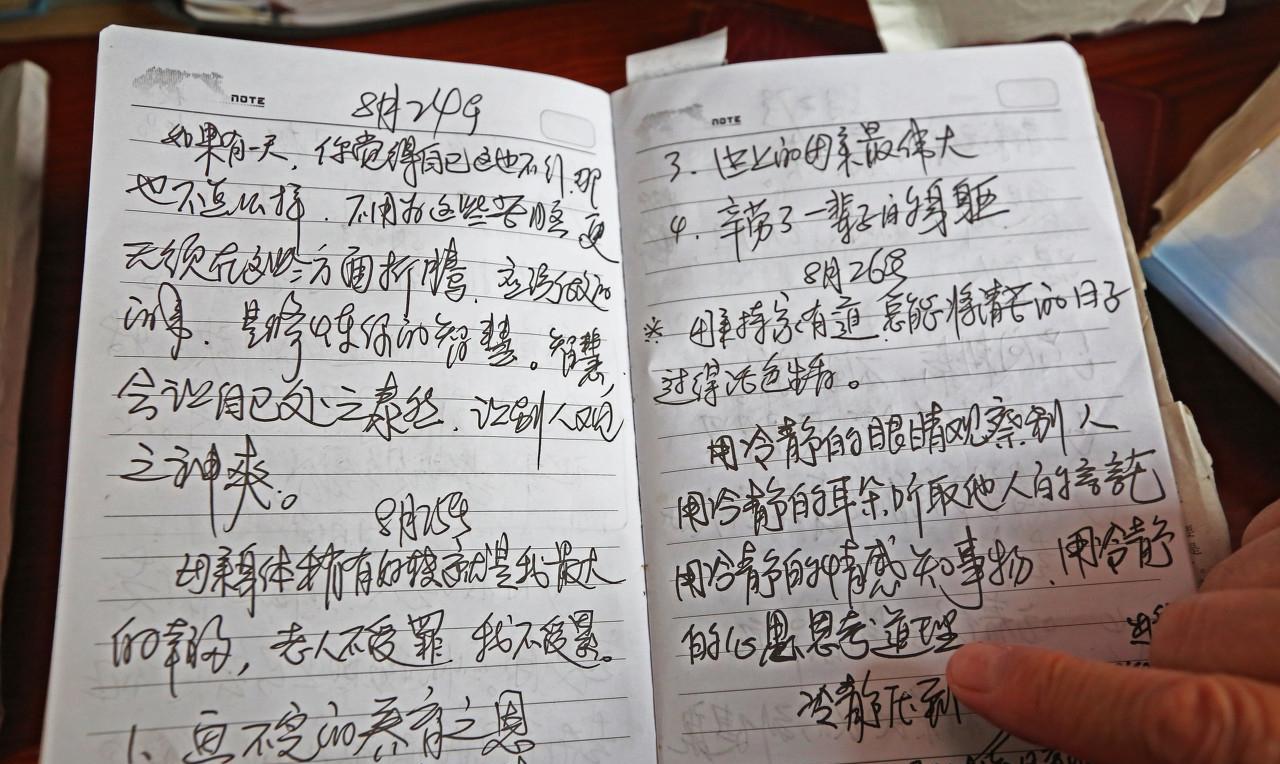 NOTE
8月24日
如果有一天，你觉得自己这也不行，那
也不怎么样，不用为这些苦恼，更
无须在这些方面折腾，应该做的
事，是修炼你的智慧。智慧
会让自己处之泰然，让别人观
之神爽。
8月25日
母亲身体稍有好转就是我最大
的幸福，老人不受罪，我不受累。
1、回不完的养育之恩
NOTE
3、世上的母亲最伟大
4、辛劳了一辈子的身躯
8月26日
※ 母亲持家有道，总能将清苦的日子
过得活色生香。
用冷静的眼睛观察别人
用冷静的耳朵听取他人的
用冷静的情感知事物、用冷静
的心思思考道理
冷静压到